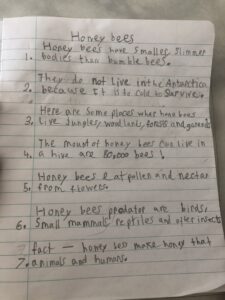 Honey bees
Honey bees have smaller slimmer
1. bodies than bumble bees.
They do not Live in the Antarctica
2. because It is to cold to Survive.
Here are Some places what hone bees
3. live Jungles, woodlands, forests and gardens
The mount of honey bees can live in
4. a hive are 80,000 bees!
Honey bees eat pollen and nectar
5. from flowers.
Honey bees predator are birds,
6. Small mammals reptiles and other insects
fact — honey bees make honey that
7. animals and humans.